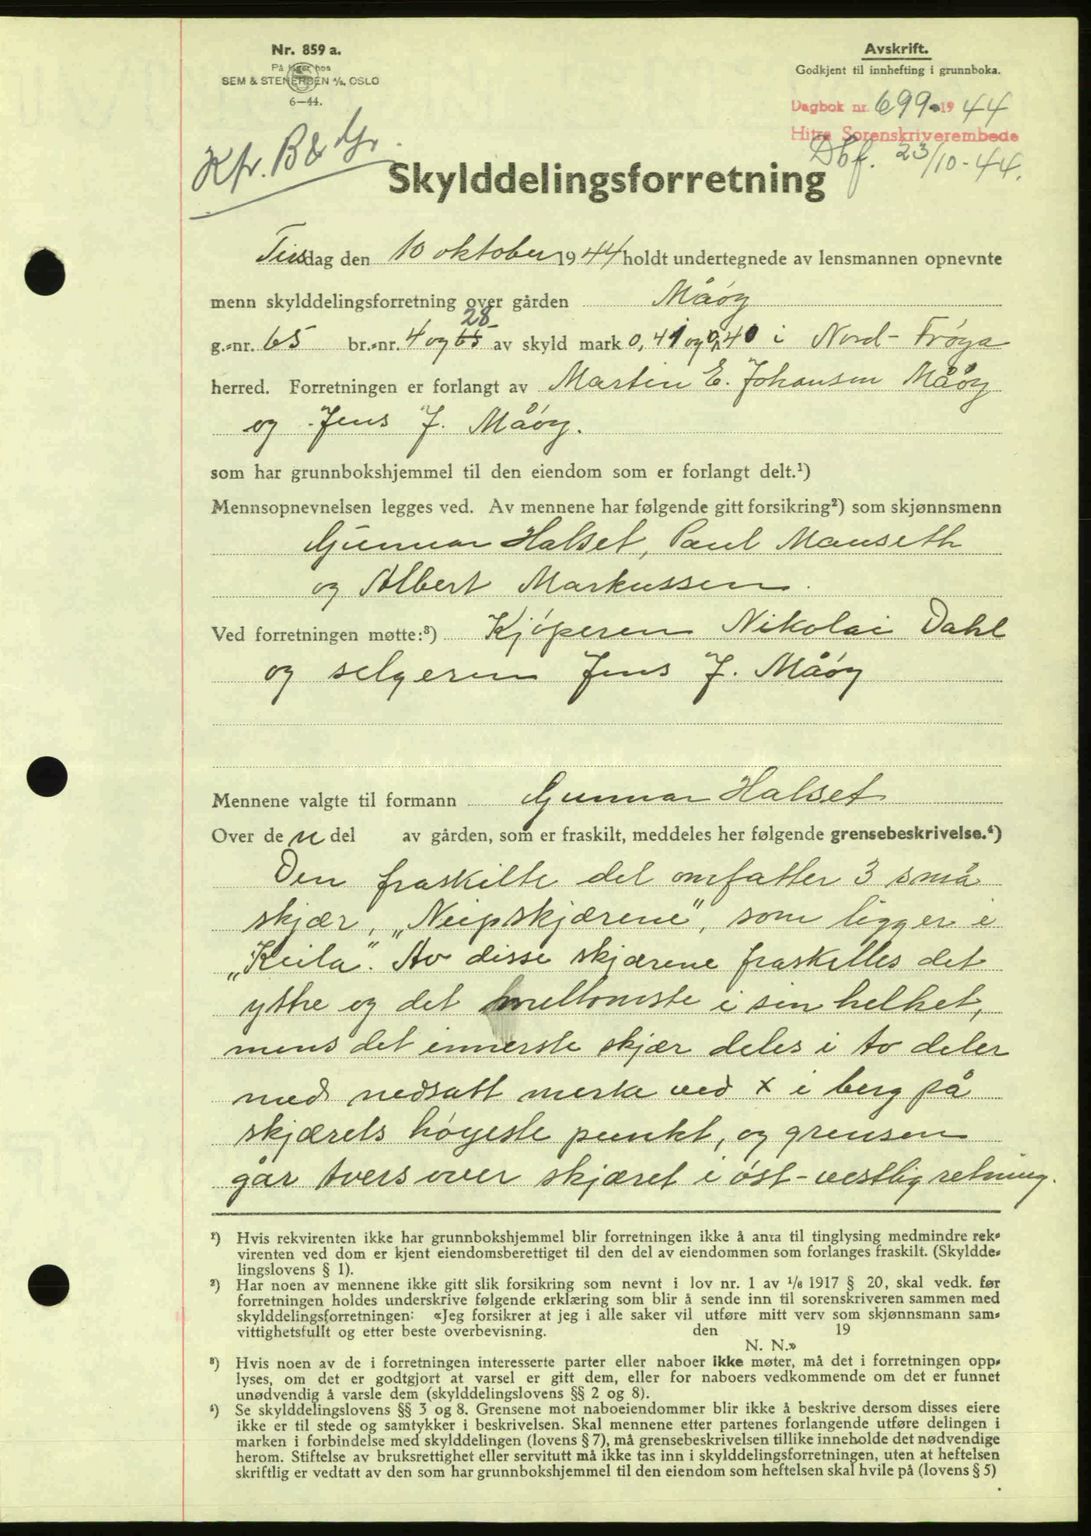 Nr. 859 a.
På lager hos
SEM & STENERSEN A/S, OSLO
6—44.
Avskrift.
Godkjent til innhefting i grunnboka.
Dagbok nr. 699 - 19 44
Hitra Sorenskriverembede
Dbf. 23/10-44.
Kfr. B & Gr.
Skylddelingsforretning
Tirsdag den 10 oktober 1944 holdt undertegnede av lensmannen opnevnte
menn skylddelingsforretning over gården Måøy
28
g.-nr. 65 br.-nr. 4 og av skyld mark 0,41 og 0,40 i Nord-Frøya
herred. Forretningen er forlangt av Martin E. Johansen Måøy
og Jens J. Måøy.
som har grunnbokshjemmel til den eiendom som er forlangt delt.¹)
Mennsopnevnelsen legges ved. Av mennene har følgende gitt forsikring²) som skjønnsmenn
Gunnar Halset, Paul Mauseth
og Albert Markussen.
Ved forretningen møtte:³) Kjøperen Nikolai Dahl
og selgeren Jens J. Måøy
Mennene valgte til formann Gunnar Halset
Over den del av gården, som er fraskilt, meddeles her følgende grensebeskrivelse.⁴)
Den fraskilte del omfatter 3 små
skjær, „Neipskjærene", som ligger i
„Keila". Av disse skjærene fraskilles det
ytre og det mellomste i sin helhet,
mens det innerste skjær deles i to deler
med nedsatt merke ved x i berg på
skjærets høyeste punkt, og grensen
går tvers over skjæret i øst-vestlig retning.
¹) Hvis rekvirenten ikke har grunnbokshjemmel blir forretningen ikke å anta til tinglysing medmindre rek-
virenten ved dom er kjent eiendomsberettiget til den del av eiendommen som forlanges fraskilt. (Skyldde-
lingslovens § 1).
²) Har noen av mennene ikke gitt slik forsikring som nevnt i lov nr. 1 av 1/6 1917 § 20, skal vedk. før
forretningen holdes underskrive følgende erklæring som blir å sende inn til sorenskriveren sammen med
skylddelingsforretningen: «Jeg forsikrer at jeg i alle saker vil utføre mitt verv som skjønnsmann sam-
vittighetsfullt og etter beste overbevisning. den 19
N. N.»
³) Hvis noen av de i forretningen interesserte parter eller naboer ikke møter, må det i forretningen opp-
lyses, om det er godtgjort at varsel er gitt dem, eller for naboers vedkommende om det er funnet
unødvendig å varsle dem (skylddelingslovens §§ 2 og 8).
⁴) Se skylddelingslovens §§ 3 og 8. Grensene mot naboeiendommer blir ikke å beskrive dersom disses eiere
ikke er til stede og samtykker i beskrivelsen. Skal mennene etter partenes forlangende utføre delingen i
marken i forbindelse med skylddelingen (lovens § 7), må grensebeskrivelsen tillike inneholde det nødvendige
herom. Stiftelse av bruksrettighet eller servitutt må ikke tas inn i skylddelingsforretningen, uten at heftelsen
skriftlig er vedtatt av den som har grunnbokshjemmel til den eiendom som heftelsen skal hvile på (lovens § 5)